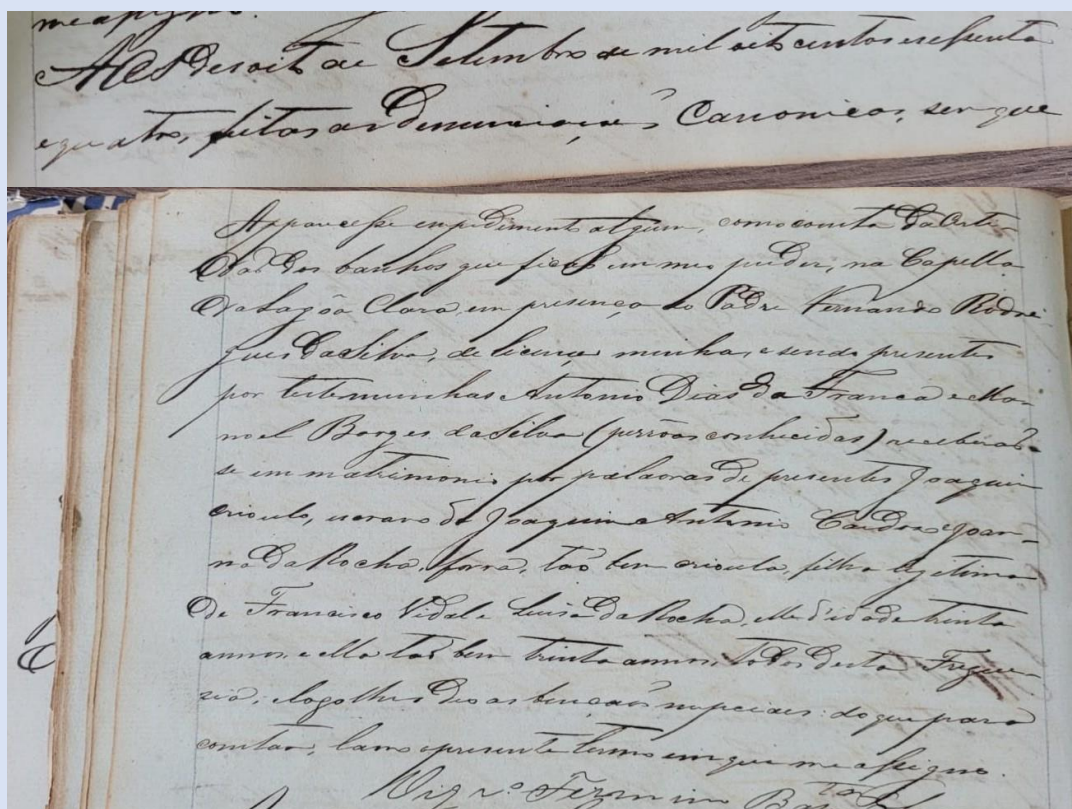 me assigno.
Aos desoito de Setembro de mil oito centos e sessenta
e quatro, feitas as Denunciaçoẽs Canonicas, sem que
Apparecesse impedimento algum, como consta da Certi-
daõ dos banhos que fica em meu poder, na Capella
da Lagôa Clara, em presença do Padre Fernando Rodri-
gues da Silva, de licença minha, e sendo presentes
por testemunhas Antonio Dias da França e Ma-
noel Borges da Silva (pessôas conhecidas) receberaõ-
se em matrimonio por palavras de presentes Joaquim
crioulo, escravo de Joaquim Antonio e Joan-
na da Rocha, forra, taõ bem crioula, filha legitima
de Francisco Vidal e Luisa da Rocha, elle d'idade trinta
annos, e ella taõ bem trinta annos, todos desta Fregue-
zia, e logo lhes deo as bençaõs nupciaes: do que para
constar, lavro o presente termo em que me assigno.
Vigr.º Firmino Bap.ta